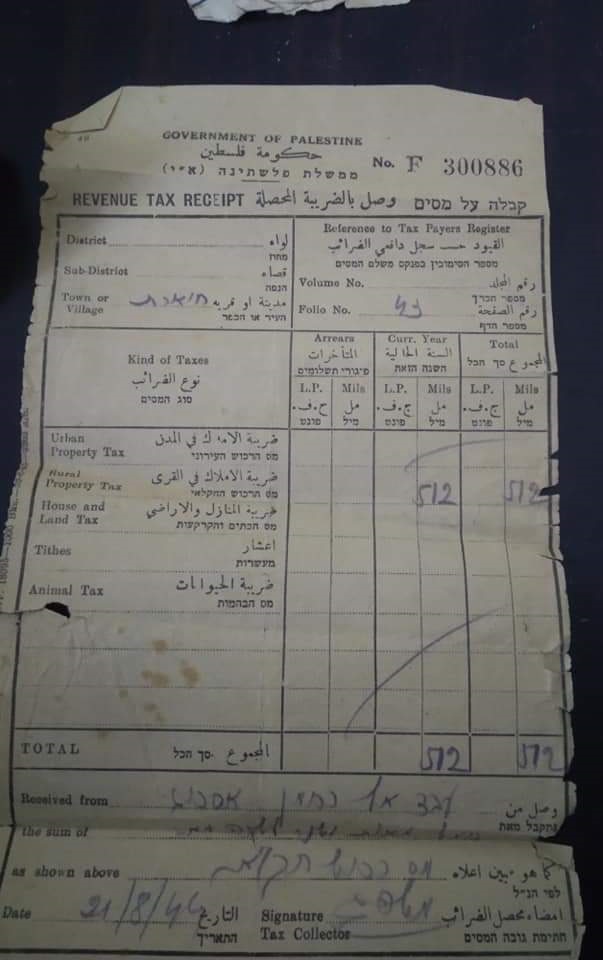 GOVERNMENT OF PALESTINE
حكومة فلسطين
ממשלת פלשתינה (א״י)
No. F 300886
REVENUE TAX RECEIPT وصل بالضريبة المحصلة קבלה על מסים
District لواء
מחוז
Sub-District قضاء
הנפה
Town or Village مدينة او قريه
העיר או הכפר
Reference to Tax Payers Register
القيود حسب سجل دافعي الضرائب
מספר הסימוכין בפנקס משלם המסים
Volume No. رقم المجلد
מספר הכרך
Folio No. 43 رقم الصفحة
מספר הדף
Kind of Taxes
نوع الضرائب
סוג המסים
Arrears Curr. Year Total
المتأخرات السنة الحالية المجموع סך הכל
פיגורי תשלומים השנה הזאת
L.P. Mils L.P. Mils L.P. Mils
ج.ف. مل ج.ف. مل ج.ف. مل
פונט מיל פונט מיל פונט מיל
Urban Property Tax ضريبة الاملاك في المدن
מס הרכוש העירוני
Rural Property Tax ضريبة الاملاك في القرى 512 512
מס הרכוש החקלאי
House and Land Tax ضريبة المنازل والاراضي
מס הבתים והקרקעות
Tithes اعشار
מעשרות
Animal Tax ضريبة الحيوانات
מס הבהמות
TOTAL المجموع סך הכל 512 512
Received from وصل من
נתקבל מאת
the sum of
as shown above كما هو مبين اعلاه
לפי הנ״ל
Date 21/8/44 التاريخ
התאריך
Signature Tax Collector امضاء محصل الضرائب
חתימת גובה המסים